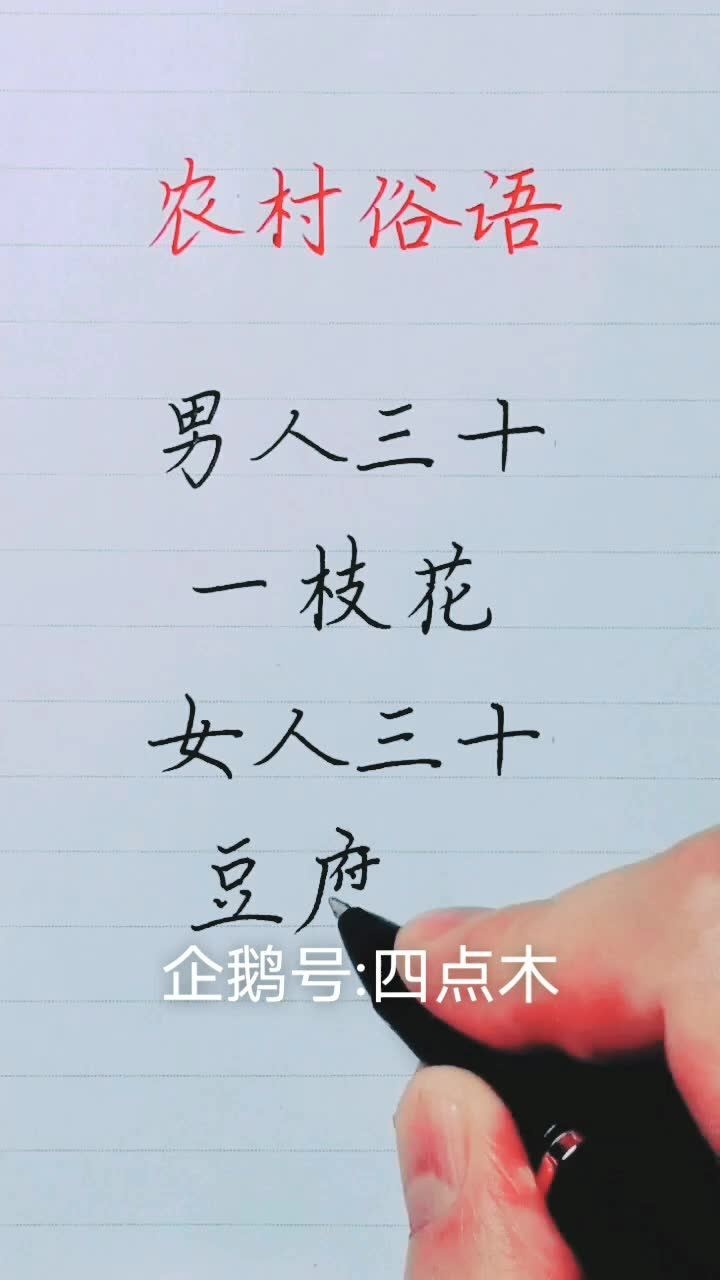 农村俗语
男人三十
一枝花
女人三十
豆府
企鹅号:四点木